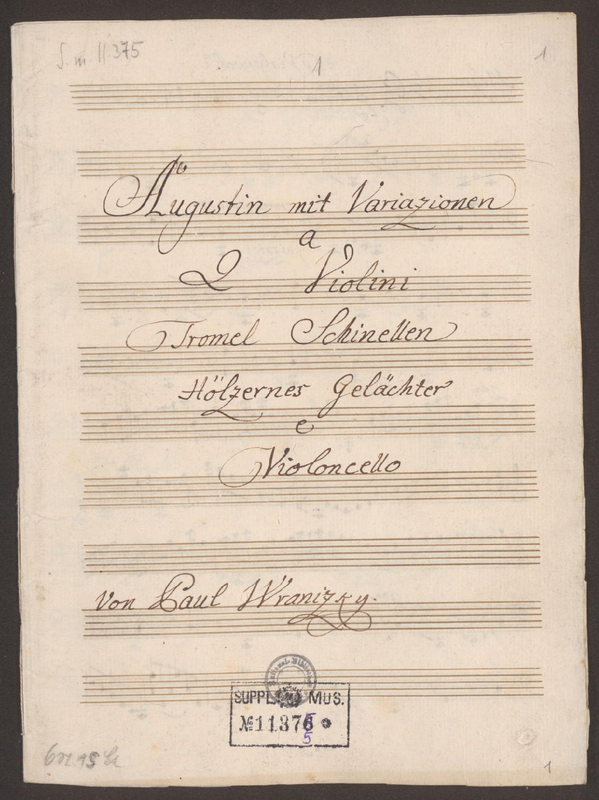 S. m. 11375
1
1
Augustin mit Variazionen
a
2 Violini
Tromel Schinellen
Hölzernes Gelächter
e
Violoncello
Von Paul Wranizky.
SUPPL. MUS.
№11376
5
1